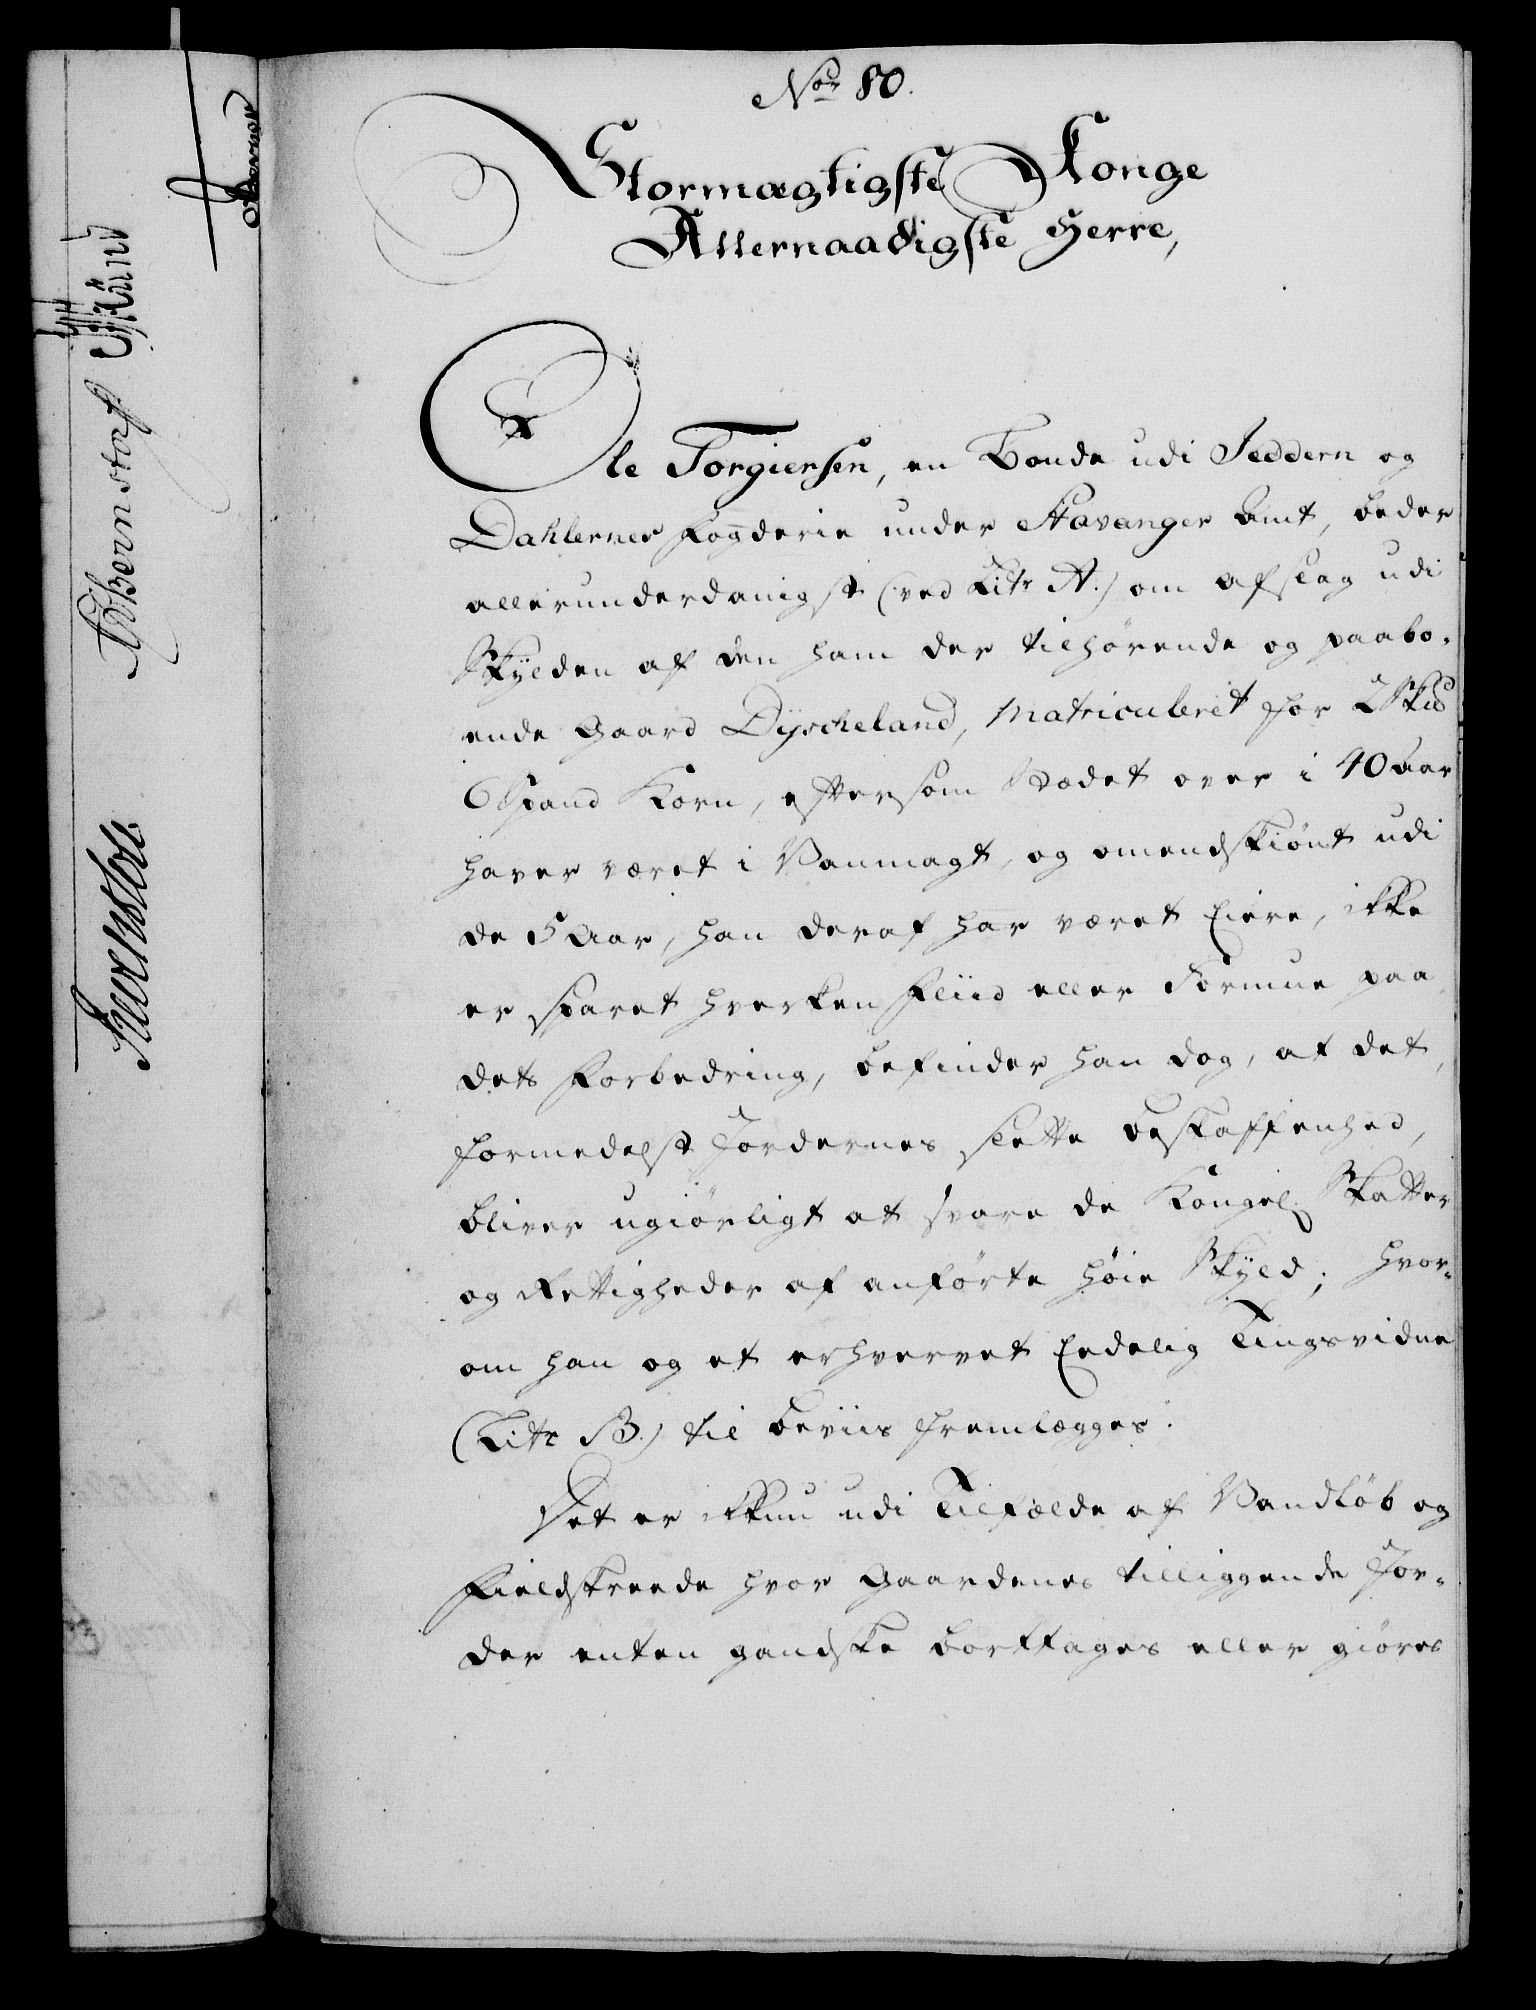 No 80.
Stormægtigste Konge
Allernaadigste Herre,
Ole Torgiersen, en Bonde udi Jeddern og
Dahlernes Fogderie under Stavanger Amt, beder
allerunderdanigst (ved Litr A.) om afslag udi
Skylden af den ham der tilhørende og paabo-
ende Gaard Dyscheland, Matriculeret for 2 Skd
6 Spand Korn, eftersom Stædet over i 40 Aar
haver været i Vanmagt, og omendskiønt udi
de 5 Aar, han deraf har været Eiere, ikke
er sparet hverken Fliid eller Formue paa
dets Forbedring, befinder han dog, at det,
formedelst Jordernes slette beskaffenhed,
bliver ugiørligt at svare de Kongel. Skatter
og Rettigheder af anførte høie Skyld; hvor-
om han og et erhvervet Eedelig Tingsvidne
(Litr B.) til beviis fremlægges.
Det er ikkun udi Tilfælde af Vandløb og
Fieldskreede hvor Gaardenes tilliggende Jor-
der enten gandske borttages eller giøres